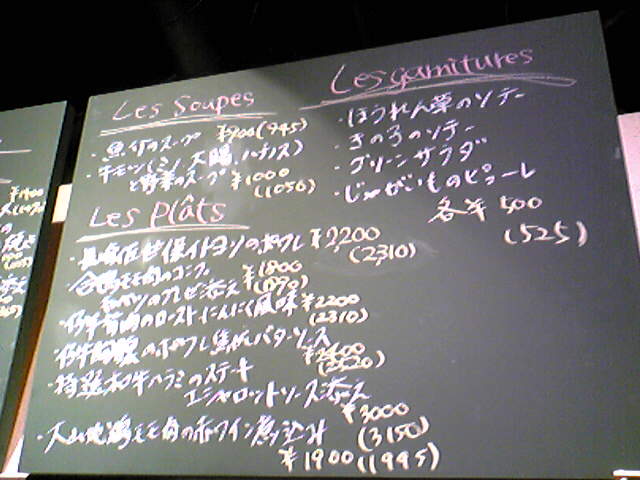 Les Soupes
・魚介のスープ ¥900(945)
・牛モツ(ミノ、大腸、ハチノス)
と野菜のスープ ¥1000
(1050)
Les Plâts
・長崎佐世保イトヨリのポワレ ¥2,200
(2310)
・合鴨モモ肉のコンフィ ¥1800
キャベツのブレゼ添え (1890)
・仔羊背肉のローストにんにく風味 ¥2200
(2310)
・仔牛胸腺のポワレ焦がしバターソース
¥2400
(2520)
・特選和牛ハラミのステーキ
エシャロットソース添え
¥3000
(3150)
・大山地鶏モモ肉の赤ワイン煮込み
¥1900(1995)
Les garnitures
・ほうれん草のソテー
・きの子のソテー
・グリーンサラダ
・じゃがいものピューレ
各¥500
(525)